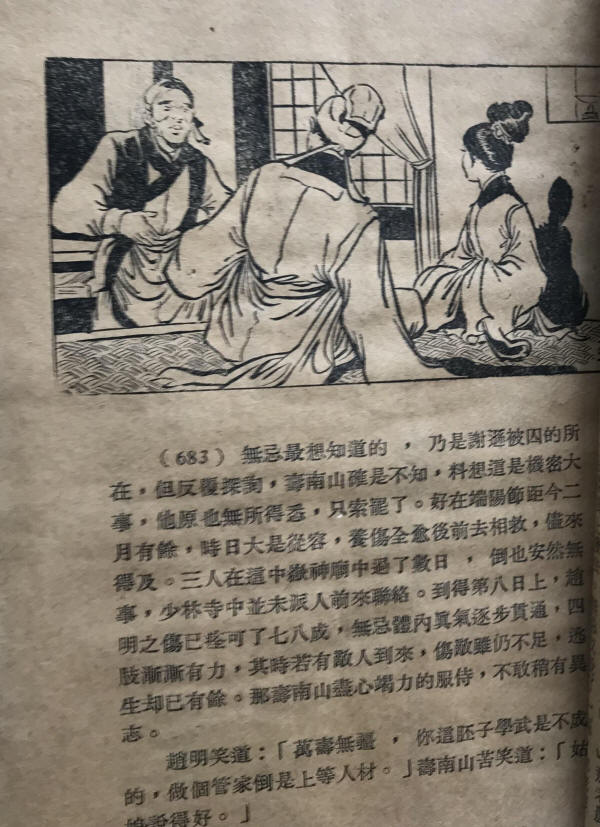 （683） 無忌最想知道的 ， 乃是謝遜被囚的所
在，但反覆探詢，壽南山確是不知，料想這是機密大
事，他原也無所得悉，只索罷了。好在端陽節距今二
月有餘，時日大是從容，養傷全愈後前去相救，儘來
得及。三人在這中嶽神廟中過了數日 ， 倒也安然無
事，少林寺中並未派人前來聯絡。到得第八日上，趙
明之傷已痊可了七八成，無忌體內眞氣逐步貫通，四
肢漸漸有力，其時若有敵人到來，傷敵雖仍不足，逃
生却已有餘。那壽南山盡心竭力的服侍，不敢稍有異
志。
趙明笑道：「萬壽無疆 ， 你這胚子學武是不成
的，做個管家倒是上等人材。」壽南山苦笑道：「姑
娘說得好。」